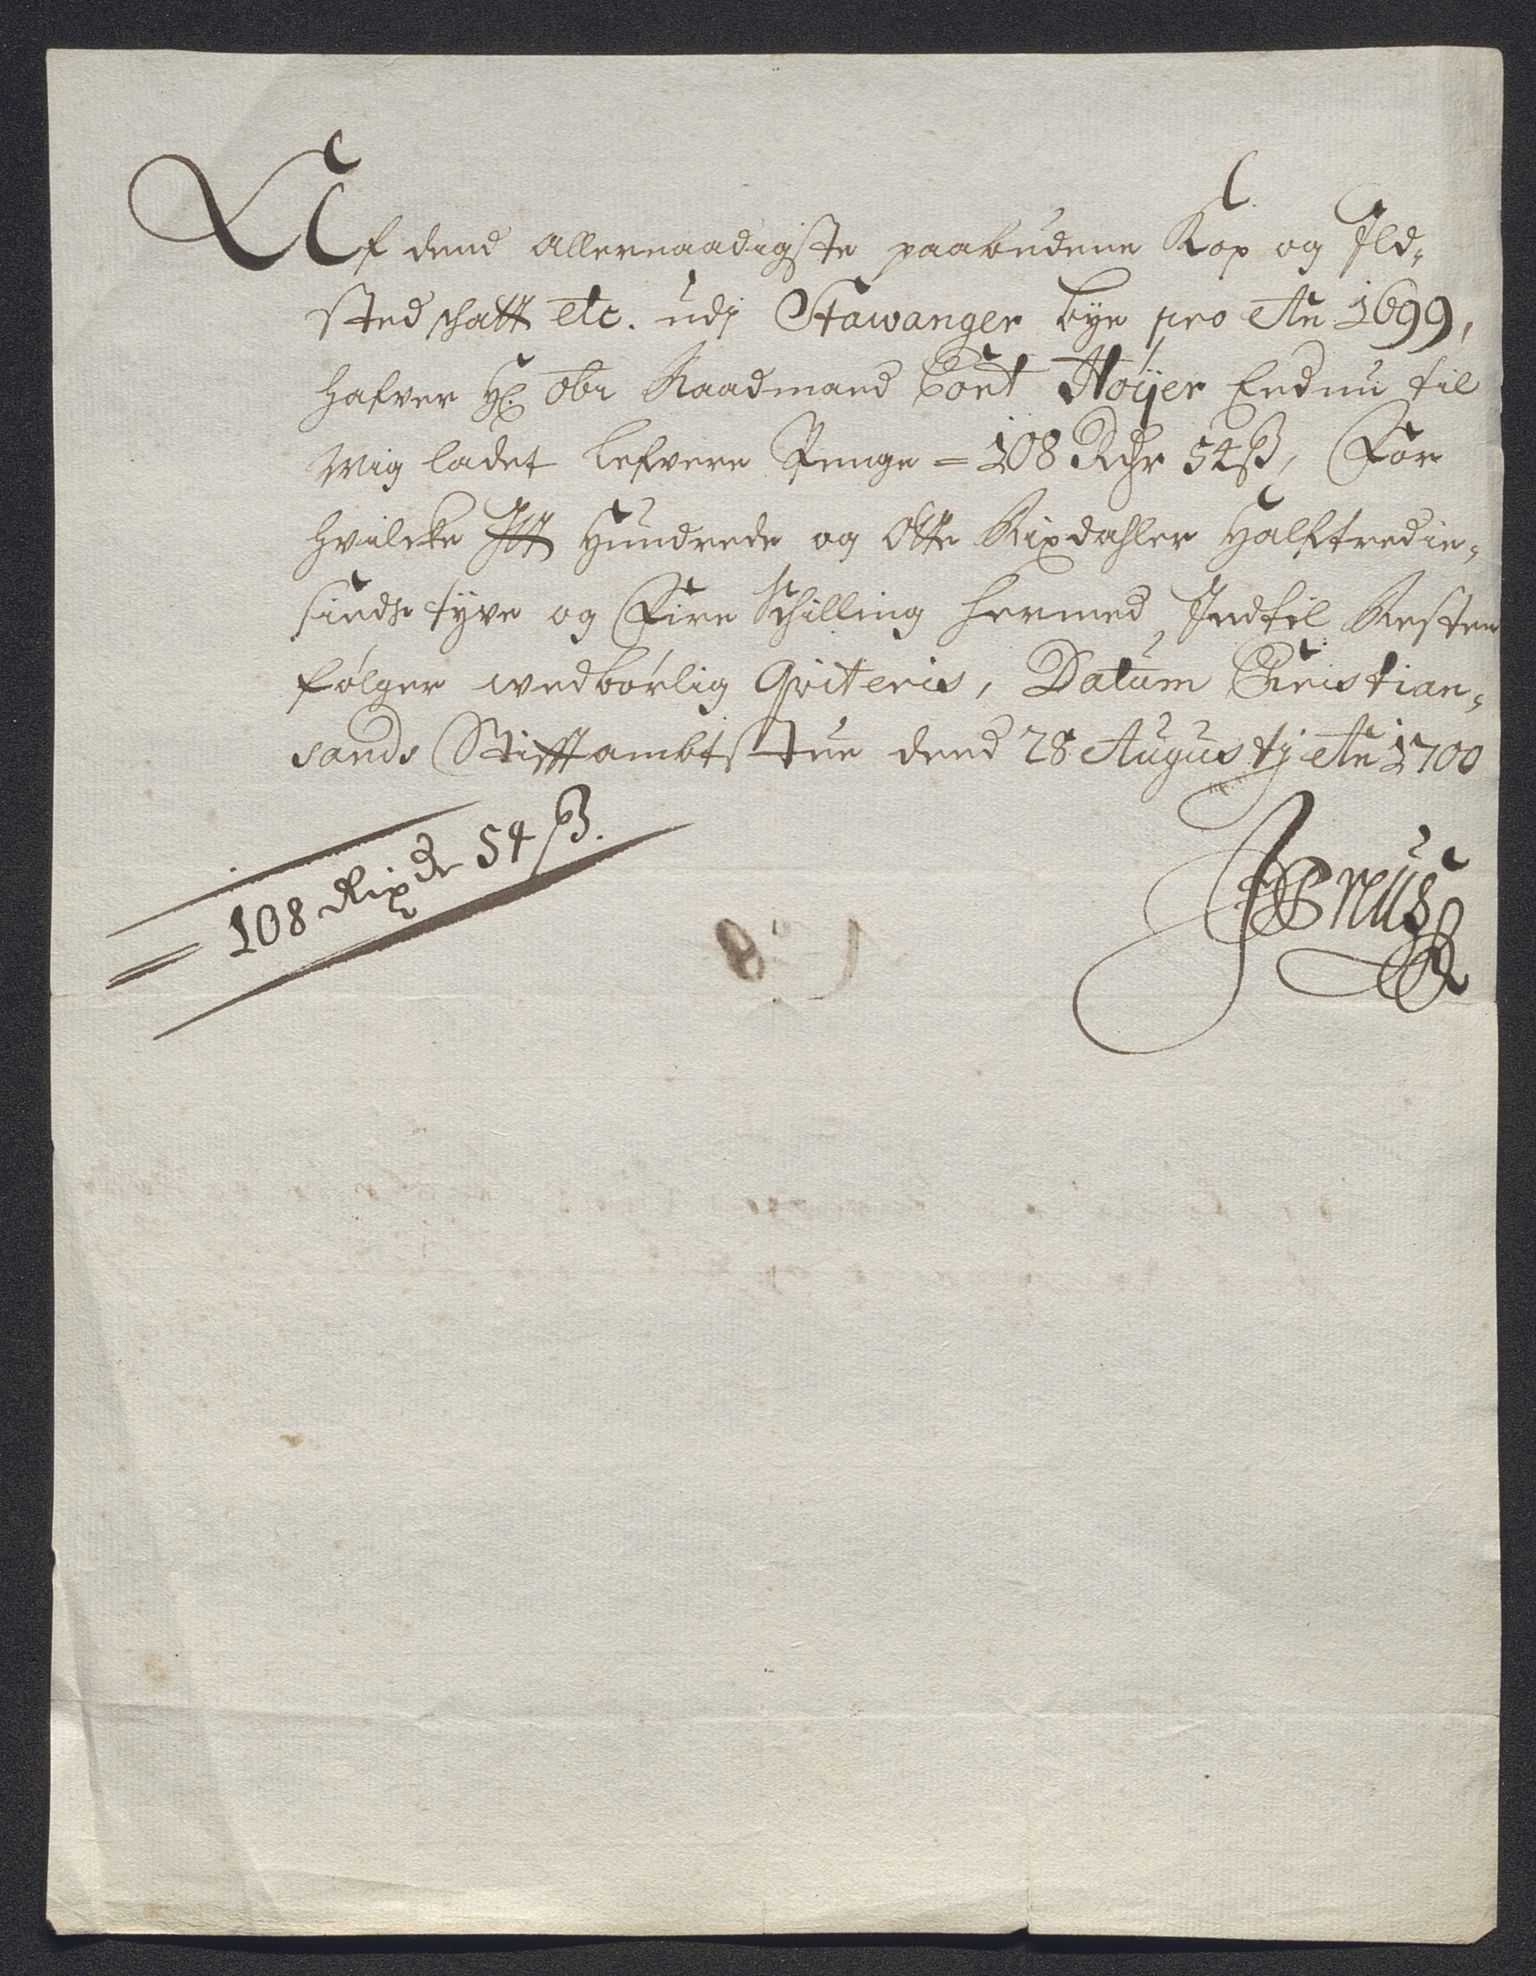 Af dend allernaadigste paabudene Kop og Ild-
sted schatt etc. udj Stawanger bye pro Ao 1699,
hafver Hr. Obr Raadmand Cort Höyer Endnu til
Mig ladet lefvere Penge = 108 Rdr 54 ß, For
hvilcke Itt Hundrede og Otte Rixdahler Halftredie-
sinds tyve og Fire Schilling hermed Indtil Resten
følger wedbørlig Qviteris, Datum Christian-
sands Stifftambtstue dend 28 Augustj Ao 1700
= 108 Rixdr 54 ß.